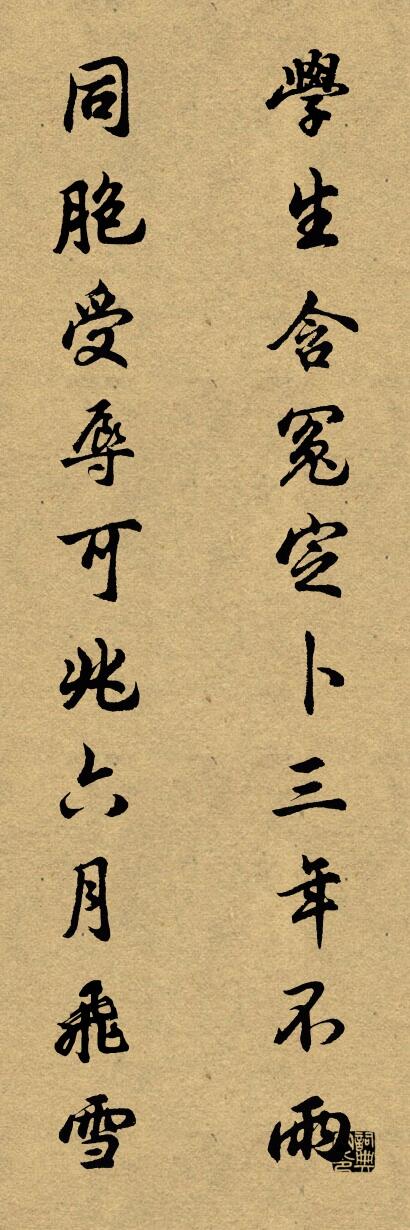 學生含冤定卜三年不雨
同胞受辱可兆六月飛雪